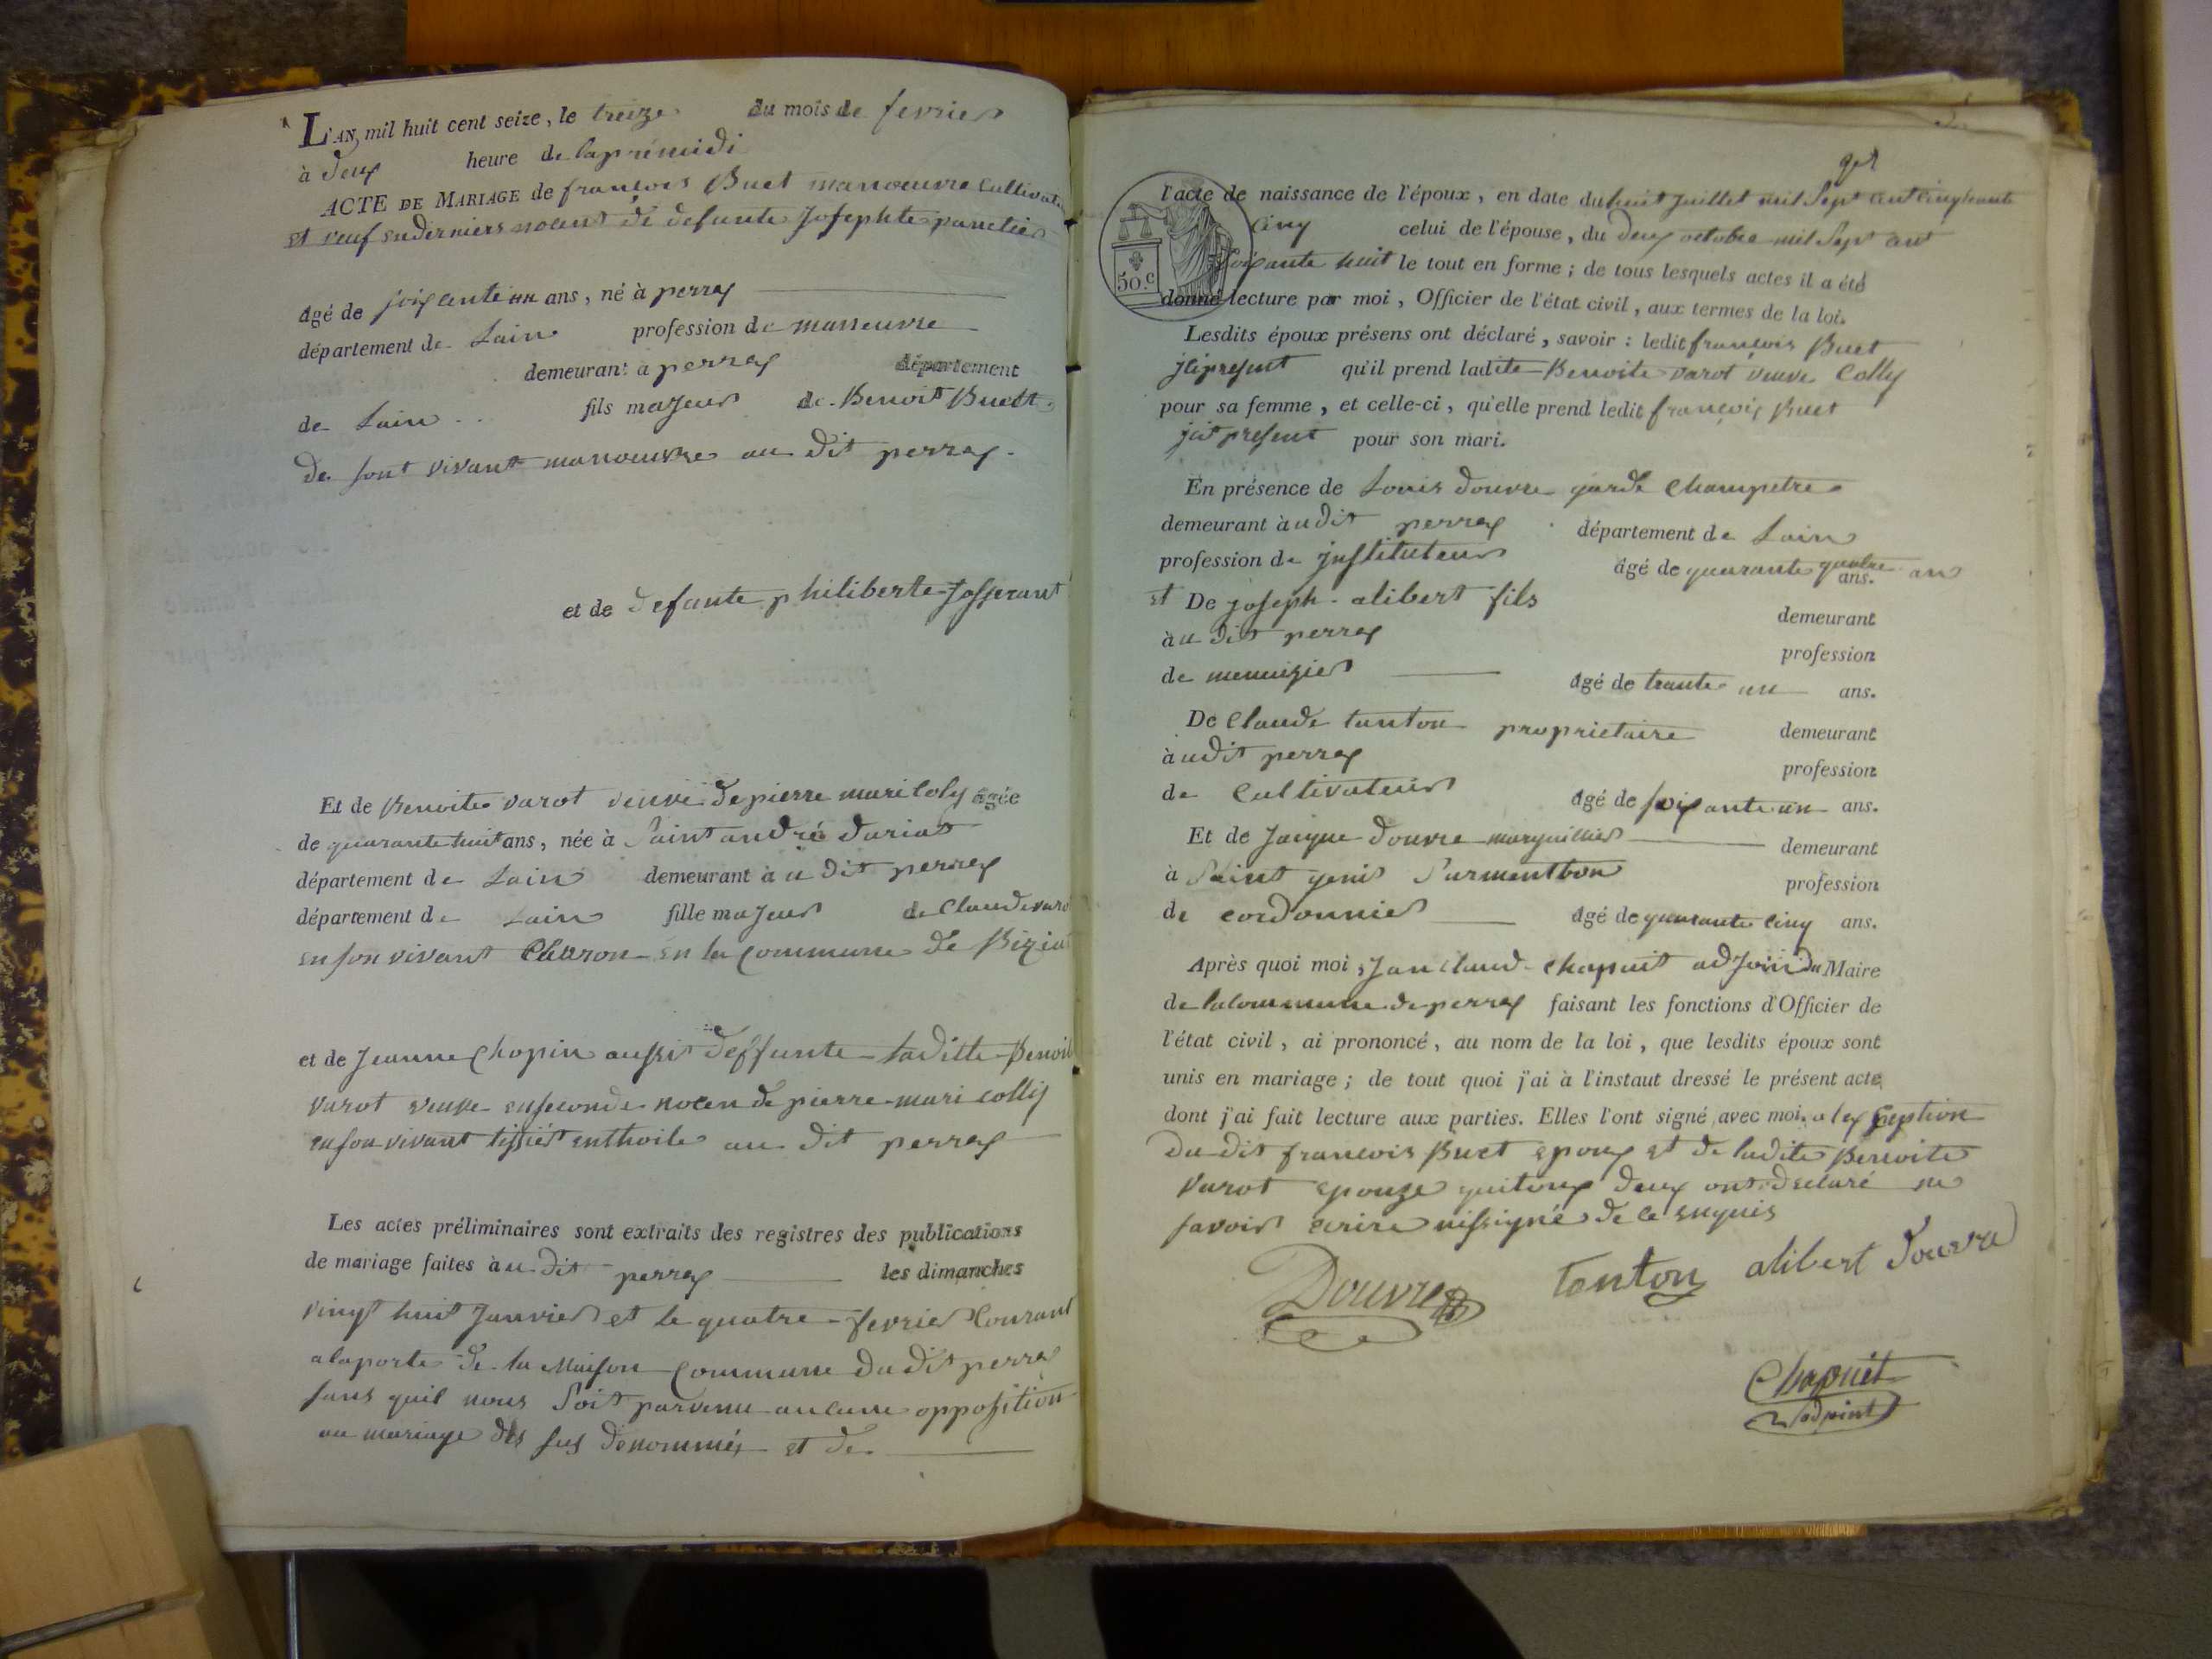 L'AN mil huit cent seize, le treize du mois de fevrier
à deux heure de laprémidi
ACTE DE MARIAGE de françois Buet manoeuvre Cultivateur
et veuf en derniers nocent de defunte Josephte panetier
âgé de soixante un ans, né à perrex
département de Lain profession de maneuvre
demeurant à perrex département
de Lain fils majeur de Benoit Buet
de sont vivant manoeuvre au dit perrex
et de defunte philiberte Josserant
Et de Benoite varot veuve de pierre mari Coly agée
de quarante huit ans, née à Saint andré duriat
département de Lain demeurant à u dit perrex
département de Lain fille majeur de Claude varo
en son vivant Charron en la Commune de Biziat
et de Jeanne Chopin aussi deffunte laditte Benoit
varot veuve en seconde nocen de pierre mari colly
en son vivant tissier enthoile au dit perrex
Les actes préliminaires sont extraits des registres des publications
de mariage faites à u dit perrex les dimanches
vingt huit Janvier et le quatre fevrier Courant
a laporte de la Maison Commune du dit perrex
sans quil nous Soit parvenu aucune opposition
au mariage des sus denommés et de
l'acte de naissance de l'époux, en date du huit Juillet mil Sept Cent Cinquante
Cinq celui de l'épouse, du deux octobre mil Sept Cent
Soixante huit le tout en forme; de tous lesquels actes il a été
50.c
donné lecture par moi, Officier de l'état civil, aux termes de la loi.
Lesdits époux présens ont déclaré, savoir: ledit françois Buet
qu'il prend ladite Benoite varot veuve Colly
pour sa femme, et celle-ci, qu'elle prend ledit françois Buet
present pour son mari.
En présence de Louis douvre garde Champetre
demeurant à u dit perrex département de Lain
profession de justituteur âgé de quarante quatre ans. ans
et De joseph alibert fils demeurant
à u dit perrex profession
de menuizier âgé de trante un ans.
De Claude tanton proprietaire demeurant
à u dit perrex profession
de Cultivateur âgé de soixante un ans.
Et de Jacque douvre marguillier demeurant
à Saint genis Surmenthon profession
de cordonnier âgé de quarante cinq ans.
Après quoi moi, Jan Claud Chapuit adjoin du Maire
de lalommune de perrex faisant les fonctions d'Officier de
l'état civil, ai prononcé, au nom de la loi, que lesdits époux sont
unis en mariage; de tout quoi j'ai à l'instaut dressé le présent acte
dont j'ai fait lecture aux parties. Elles l'ont signé avec moi, a lex Ception
du dit francois Buet epoux et de ladite Benoite
varot epouze qui tous deux ont declaré ne
savoir écrire nissigné de ce enquis
Douvre Tonton alibert Douvre
Chapuit
adjoint